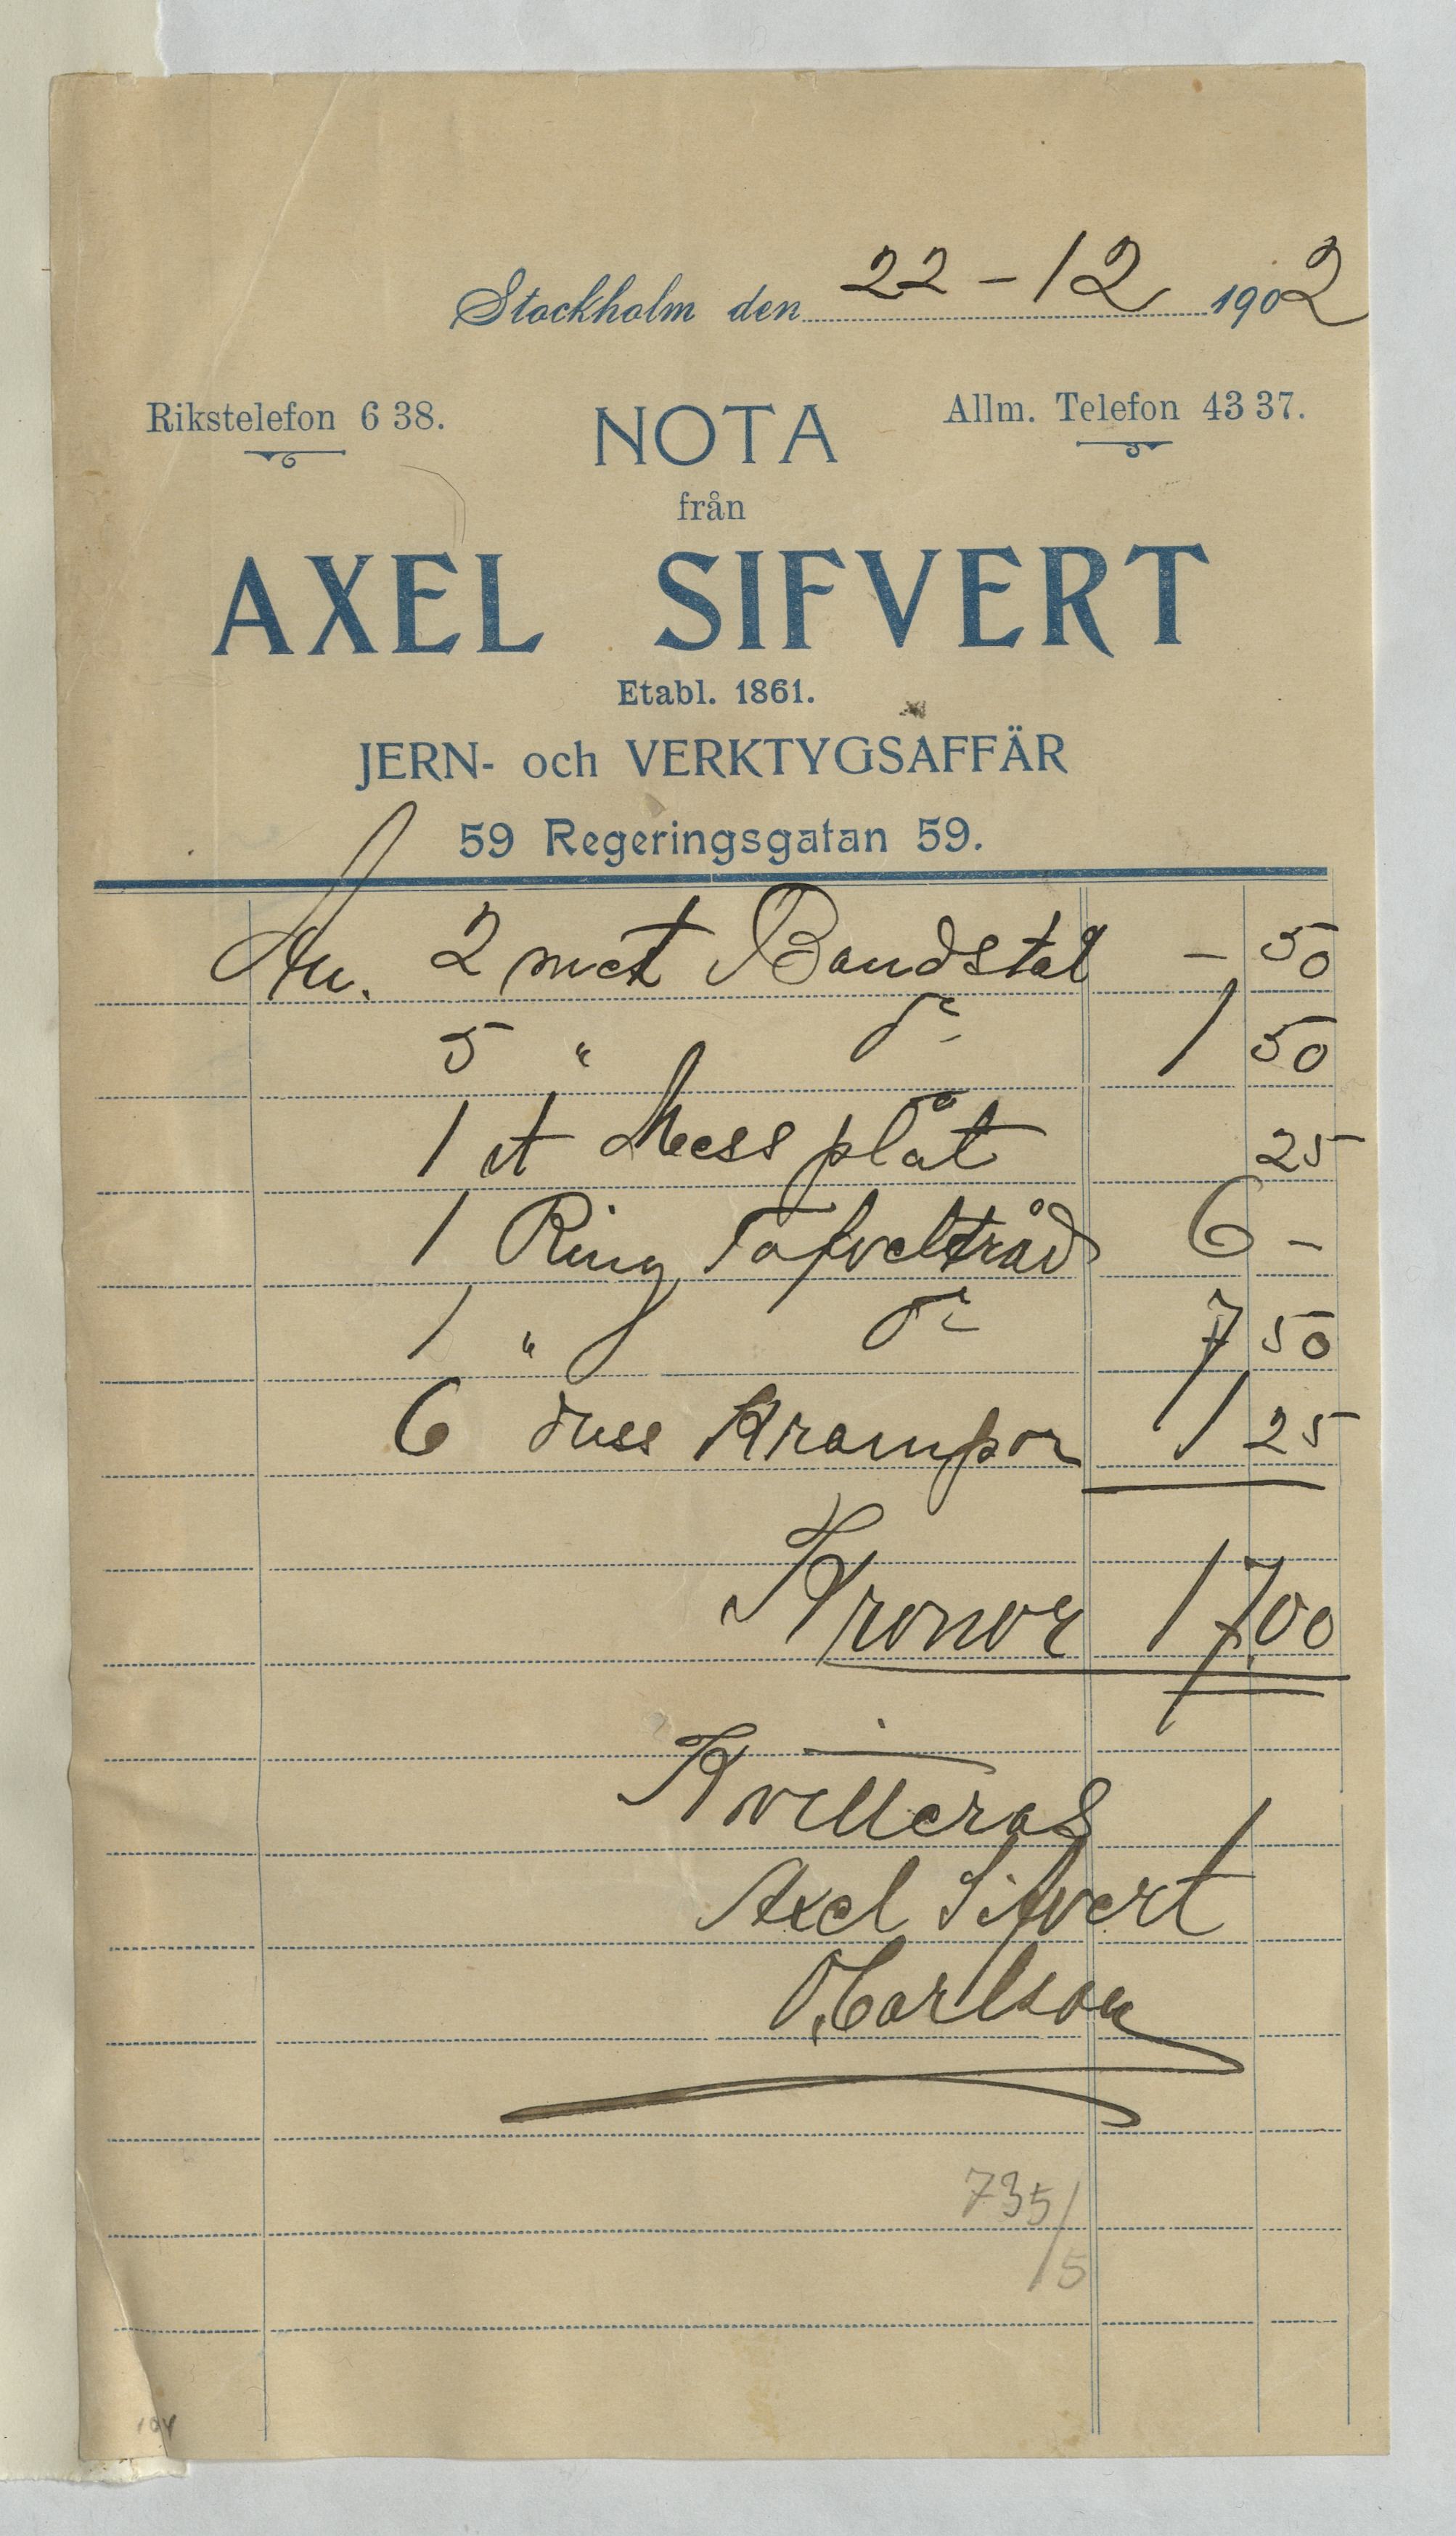 Stockholm den 22-12 1902
Rikstelefon 6 38. NOTA Allm. Telefon 43 37.
från
AXEL SIFVERT
Etabl. 1861.
JERN- och VERKTYGSAFFÄR
59 Regeringsgatan 59.
2 met Bandstål - 50
5 " do 1 50
1 st Mess plåt 25
1 Ring Tafveltråd 6 -
1 " do 7 50
6 duss Krampor 1 25
Kronor 17,00
Kvitteras
Axel Sifvert
O. Carlson
735/5